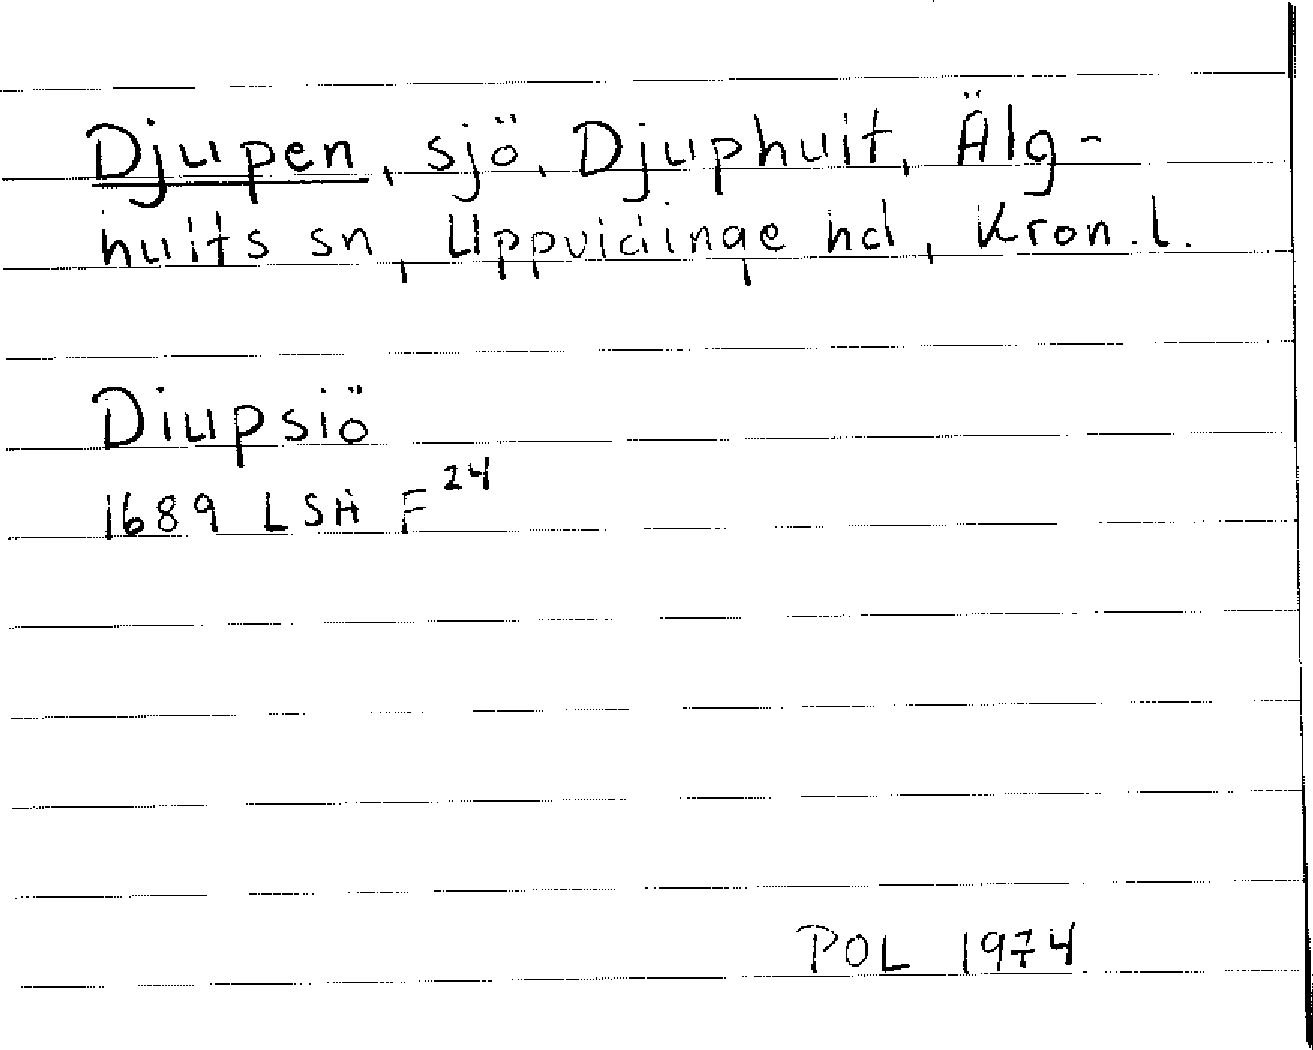 Djupen, sjö, Djuphult, Älg-
hults sn, Uppvidinge hd, Kron. l.
Diupsiö
1689 LSA F 24
POL 1974